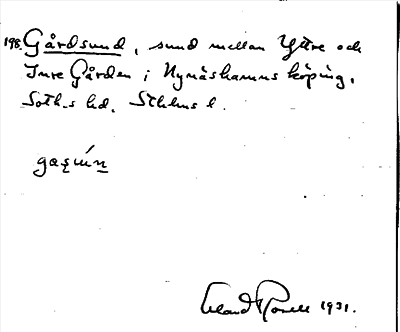 198. Gårdsund, sund mellan Yttre och
Inre Gården i Nynäshamns köping,
Soth-s hd. Sthlms l.
1931.